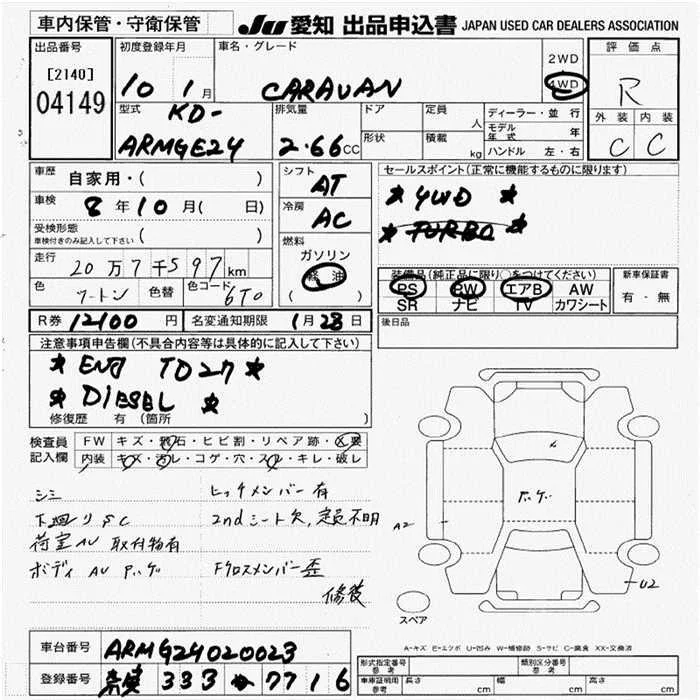 車内保管・守衛保管
JU 愛知 出品申込書 JAPAN USED CAR DEALERS ASSOCIATION
出品番号
[2140]
04149
初度登録年月
10 1月
車名・グレード
CARAVAN
2WD
4WD
評価点
R
外装 内装
C C
型式
KD-
ARMGE24
排気量
2.66cc
ドア
形状
定員 人
積載 kg
ディーラー・並行
モデル年式 年
ハンドル 左・右
車歴 自家用・( )
車検 8年10月( 日)
受検形態
車検付きのみ記入して下さい ( )
走行 20万7千597km
色 ツートン 色替 色コード 6T0
シフト AT
冷房 AC
燃料
ガソリン
軽油
( )
セールスポイント(正常に機能するものに限ります)
★ 4WD ★
★ TURBO ★
装備品(純正品に限り○をつけてください)
PS PW エアB AW
SR ナビ TV カワシート
新車保証書
有・無
R券 12100円 名変通知期限 1月28日
後日品
注意事項申告欄(不具合内容等は具体的に記入して下さい)
★ ENG TD27 ★
★ DIESEL ★
修復歴 有(箇所 )
検査員記入欄
FW キズ・飛石・ヒビ割・リペア跡・X要
内装 キズ・汚レ・コゲ・穴・スレ・キレ・破レ
シミ ヒッチメンバー有
下廻りSC 2ndシート欠,定員不明
荷室AU 取付物有
ボディ AU P.ゲ Fクロスメンバー歪
修復
P.ゲ
A2
U2
スペア
A-キズ E-エクボ U-凹み W-補修跡 S-サビ C-腐食 XX-交換済
車台番号 ARMG24020023
登録番号 333 7716
形式指定番号 参考 類別区分番号 参考
車庫証明 参考 長さ cm 幅 cm 高さ cm